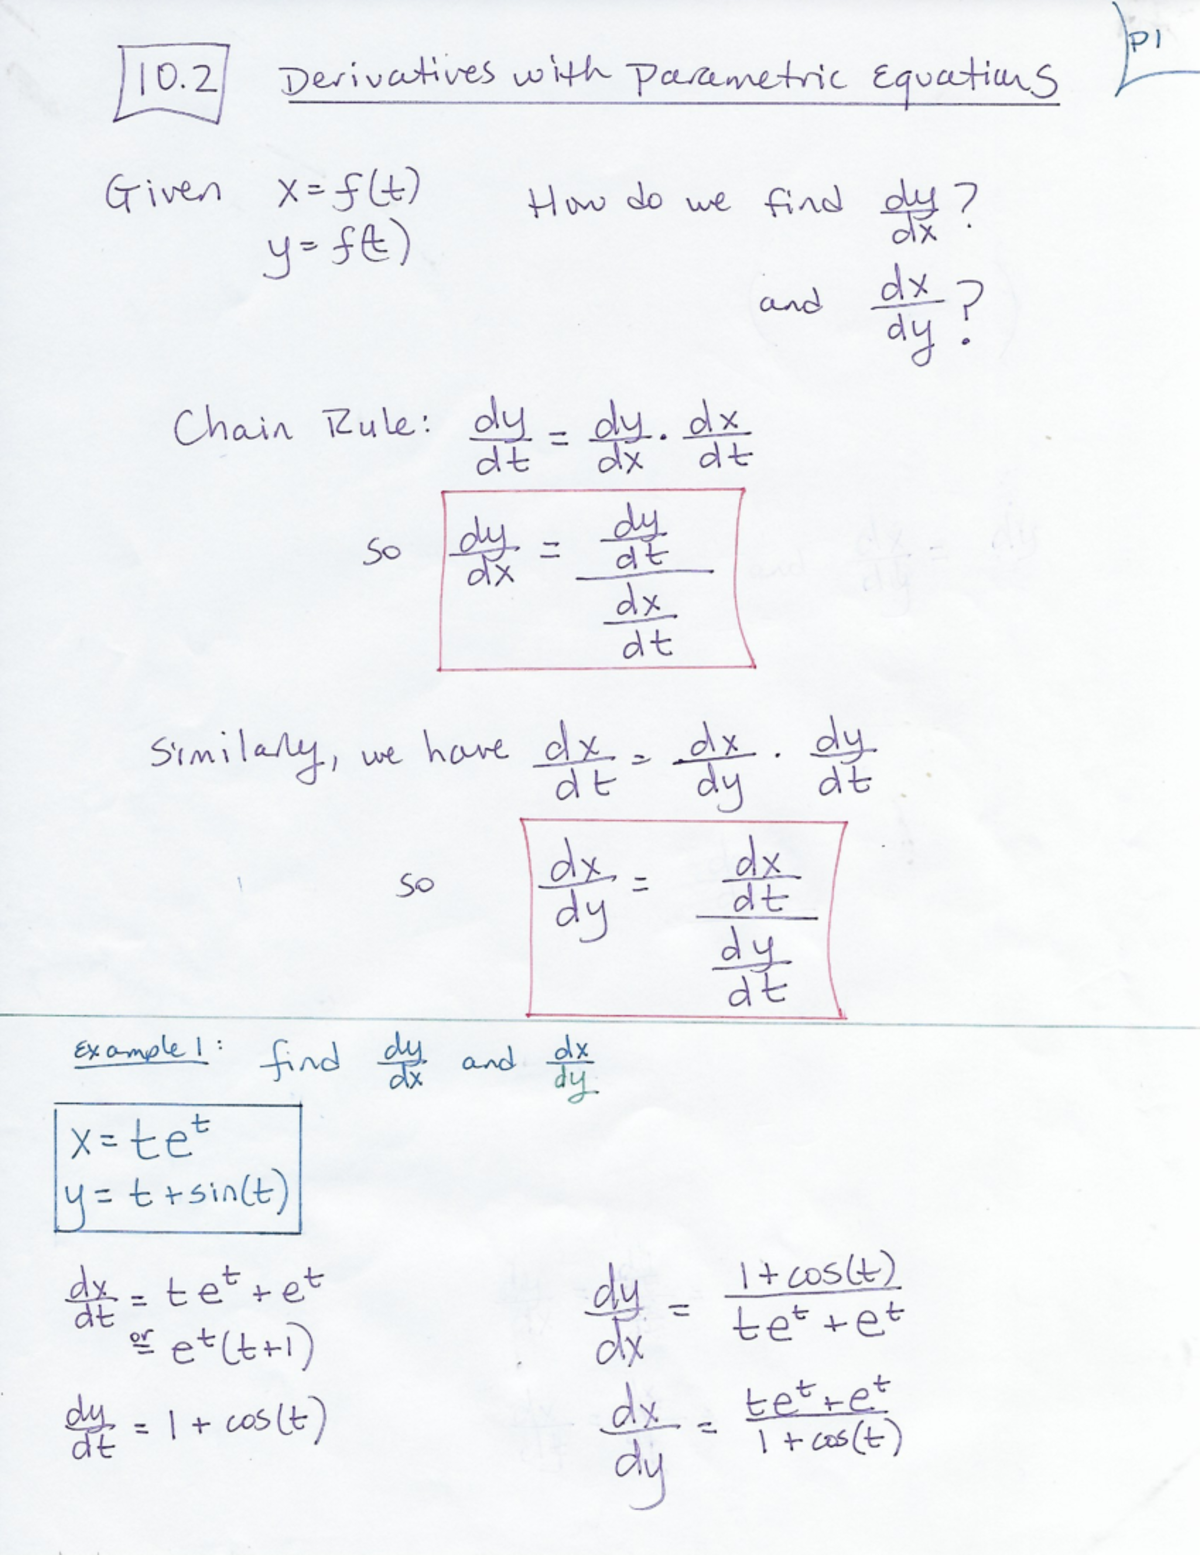 P1
10.2 Derivatives with Parametric Equations
Given x = f(t) How do we find dy/dx?
y = f(t)
and dx/dy?
Chain Rule: dy/dt = dy/dx · dx/dt
so dy/dx = (dy/dt)/(dx/dt)
Similarly, we have dx/dt = dx/dy · dy/dt
so dx/dy = (dx/dt)/(dy/dt)
Example 1: find dy/dx and dx/dy
x = te^t
y = t + sin(t)
dx/dt = te^t + e^t
or = e^t(t+1)
dy/dx = (1 + cos(t))/(te^t + e^t)
dy/dt = 1 + cos(t)
dx/dy = (te^t + e^t)/(1 + cos(t))